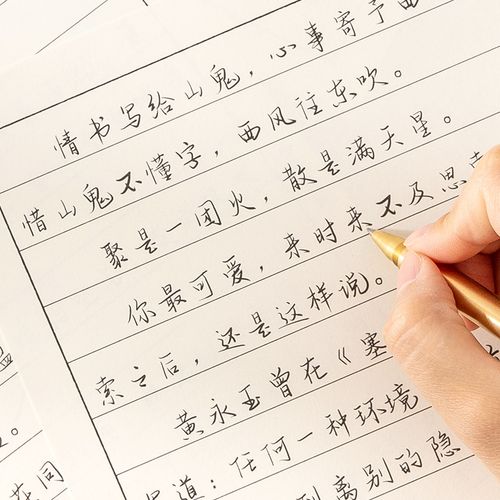 情书写给山鬼，心事寄予
惜山鬼不懂字，西风往东吹。
聚是一团火，散是满天星。
你最可爱，来时来不及思
索之后，还是这样说。
黄永玉曾在《塞
道：任何一种环境
到离别的隐
同